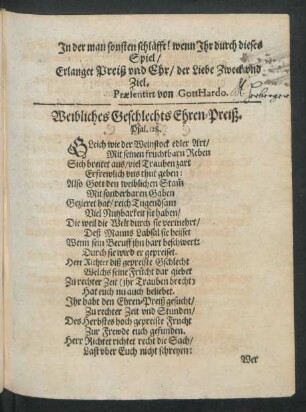 In der man sonsten schläfft! wenn Ihr durch dieses
Spiel/
Erlanget Preiß vnd Ehr/ der Liebe Zweck vnd
Ziel.
Præsentirt von GottHardo.
Weibliches Geschlechts Ehren-Preiß.
Psal. 128.
Gleich wie der Weinstock edler Art/
Mit seinen fruchtbarn Reben
Sich breitet aus/ viel Trauben zart
Erfrewlich vns thut geben:
Also Gott den weiblichen Stam̃
Mit sonderbaren Gaben
Gezieret hat/ reich Tugendsam
Viel Nutzbarkeit sie haben/
Die weil die Welt durch sie vermehrt/
Deß Manns Labsal sie heisset
Wenn sein Beruff ihn hart beschwert:
Durch sie wird er gepreiset.
Herr Richter diß gepreiste Gschlecht
Welchs seine Frücht dar giebet
Zu rechter Zeit (ihr Trauben brecht)
Hat euch nu auch beliebet.
Ihr habt den Ehren-Preiß gesucht/
Zu rechter Zeit vnd Stunden/
Des Herbstes hoch gepreiste Frucht
Zur Frewde euch gefunden.
Herr Richter richtet recht die Sach/
Last vber Euch nicht schreyen:
Wer